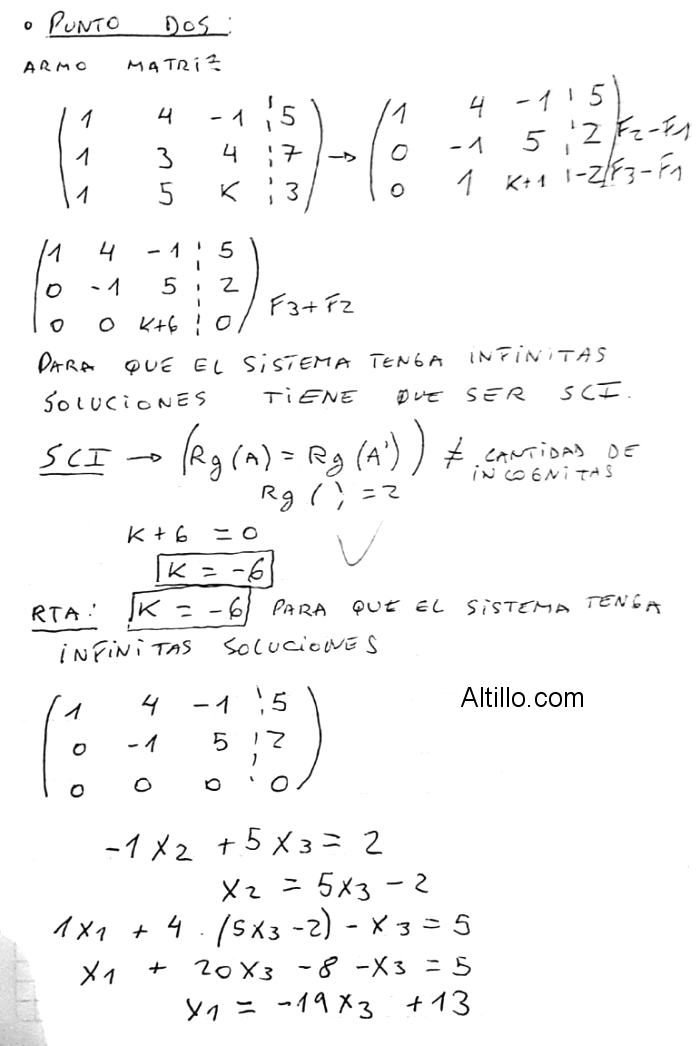 • PUNTO DOS:
ARMO MATRIZ
(1 4 -1 ¦ 5) → (1 4 -1 ¦ 5)
(1 3 4 ¦ 7) (0 -1 5 ¦ 2) F2-F1
(1 5 K ¦ 3) (0 1 K+1 ¦ -2) F3-F1
(1 4 -1 ¦ 5)
(0 -1 5 ¦ 2)
(0 0 K+6 ¦ 0) F3+F2
PARA QUE EL SISTEMA TENGA INFINITAS
SOLUCIONES TIENE QUE SER SCI.
SCI → (Rg(A) = Rg(A')) ≠ CANTIDAD DE
INCOGNITAS
Rg ( ) = 2
K + 6 = 0
K = -6
RTA: K = -6 PARA QUE EL SISTEMA TENGA
INFINITAS SOLUCIONES
Altillo.com
(1 4 -1 ¦ 5)
(0 -1 5 ¦ 2)
(0 0 0 ¦ 0)
-1X2 + 5X3 = 2
X2 = 5X3 - 2
1X1 + 4 . (5X3 - 2) - X3 = 5
X1 + 20X3 - 8 - X3 = 5
X1 = -19X3 + 13